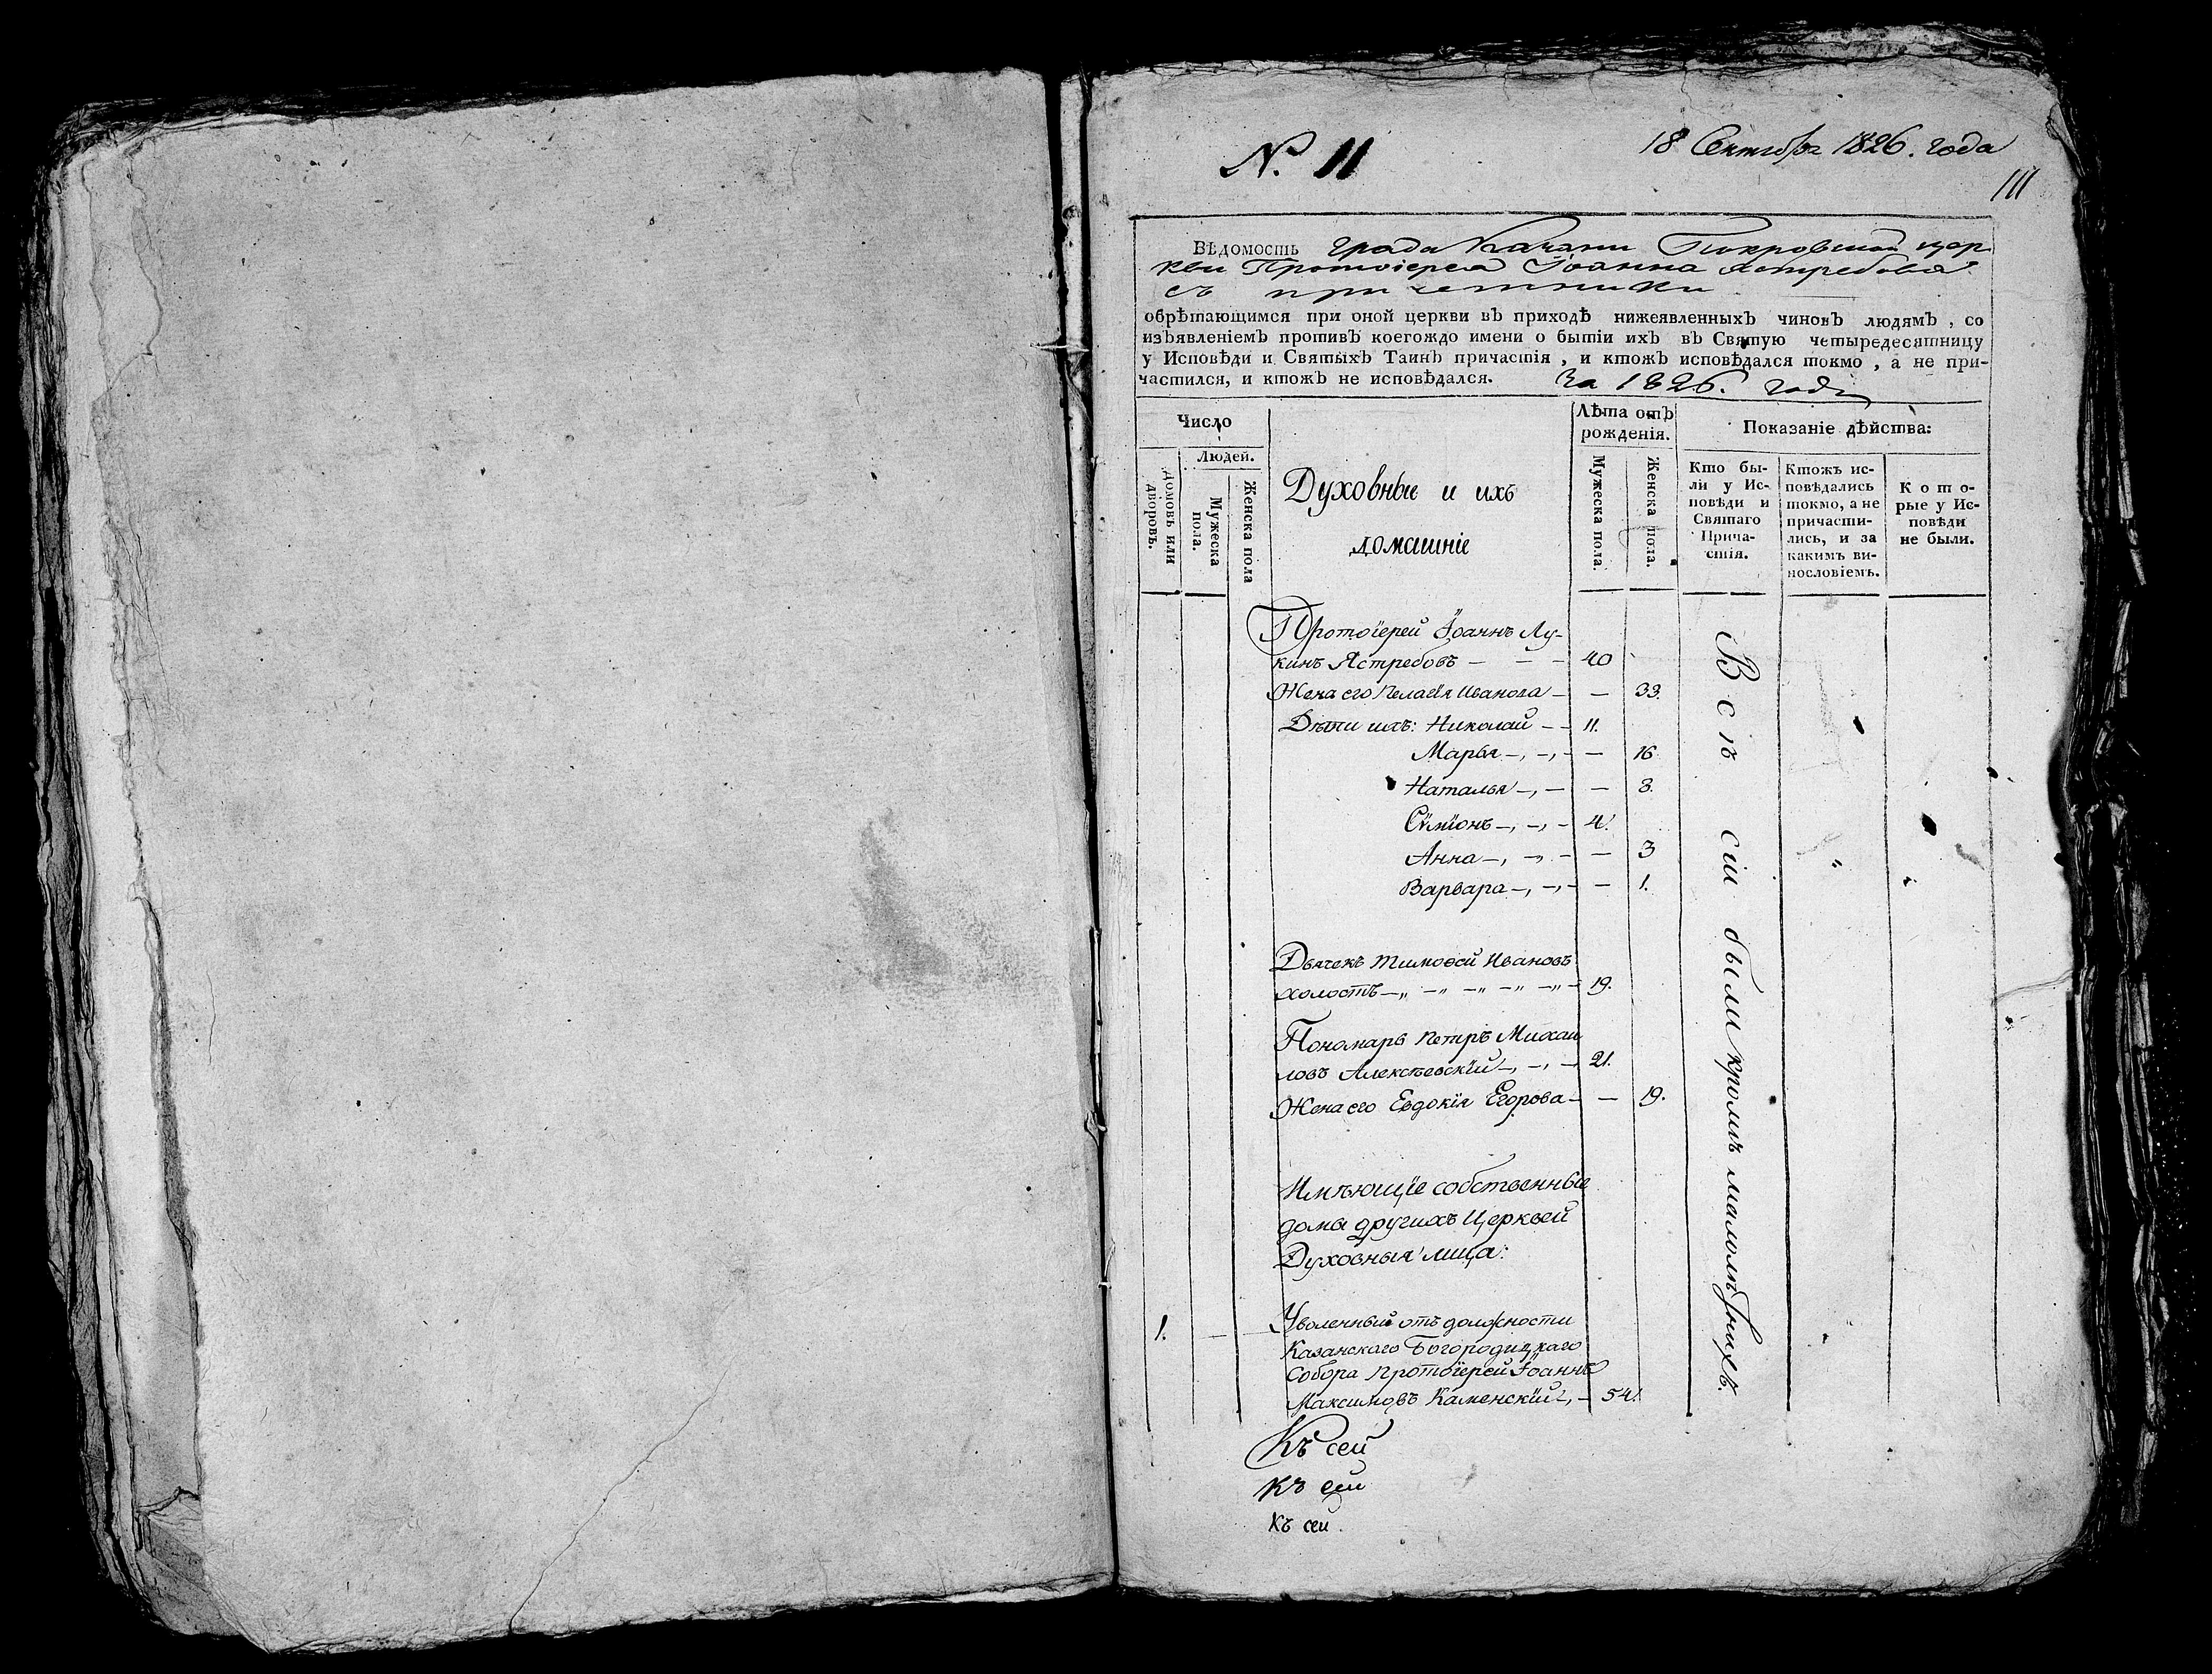 N. 11
18 Сентября 1826. года
111
Вѣдомость града Казани Покровской цер
кви Протоіерея Іоанна Ястребова
съ причетники
обрѣтающимся при оной церкви въ приходѣ нижеявленныхъ чиновъ людямъ, со
изъявленіемъ противъ коегождо имени о бытіи ихъ въ Святую четыредесятницу
у Исповѣди и Святыхъ Таинъ причастія, и ктожъ исповѣдался токмо, а не при-
частился, и ктожъ не исповѣдался. За 1826. годъ
Число
Людей.
Домовъ или
дворовъ.
Мужеска
пола.
Женска пола
Духовные и ихъ
домашніе
Лѣта отъ
рожденія.
Мужеска пола.
Женска пола.
Показаніе дѣйства:
Кто бы-
ли у Ис-
повѣди и
Святаго
Прича-
стія.
Ктожъ ис-
повѣдались
токмо, а не
причасти-
лись, и за
какимъ ви-
нословіемъ.
Кото-
рые у Ис-
повѣди
не были.
Протоіерей Іоаннъ Лу-
кинъ Ястребовъ — — — 40
Жена его Пелагія Иванова — — 33.
Дѣти ихъ: Николай — — 11.
Марья —, —, — — 16
Наталья —, — — 8.
Сѵмїонъ —, —, — 4.
Анна —, —, — — 3
Варвара —, —, — — 1.
Дьячекъ Тимоѳей Ивановъ
холостъ —„ —„ —„ —„ —„ — 19.
Пономарь Петръ Михаи
ловъ Алексѣевскій —, —, — 21.
Жена его Евдокія Егорова — — 19.
Имѣющіе собственные
домы другихъ Церквей
Духовныя лица:
1. — — Уволенный отъ должности
Казанскаго Богородицкаго
Собора Протоіерей Іоаннъ
Максимовъ Каменскій —, — 54.
Всѣ сіи были кромѣ малолѣтнихъ.
Къ сей
Къ сей
Къ сей.